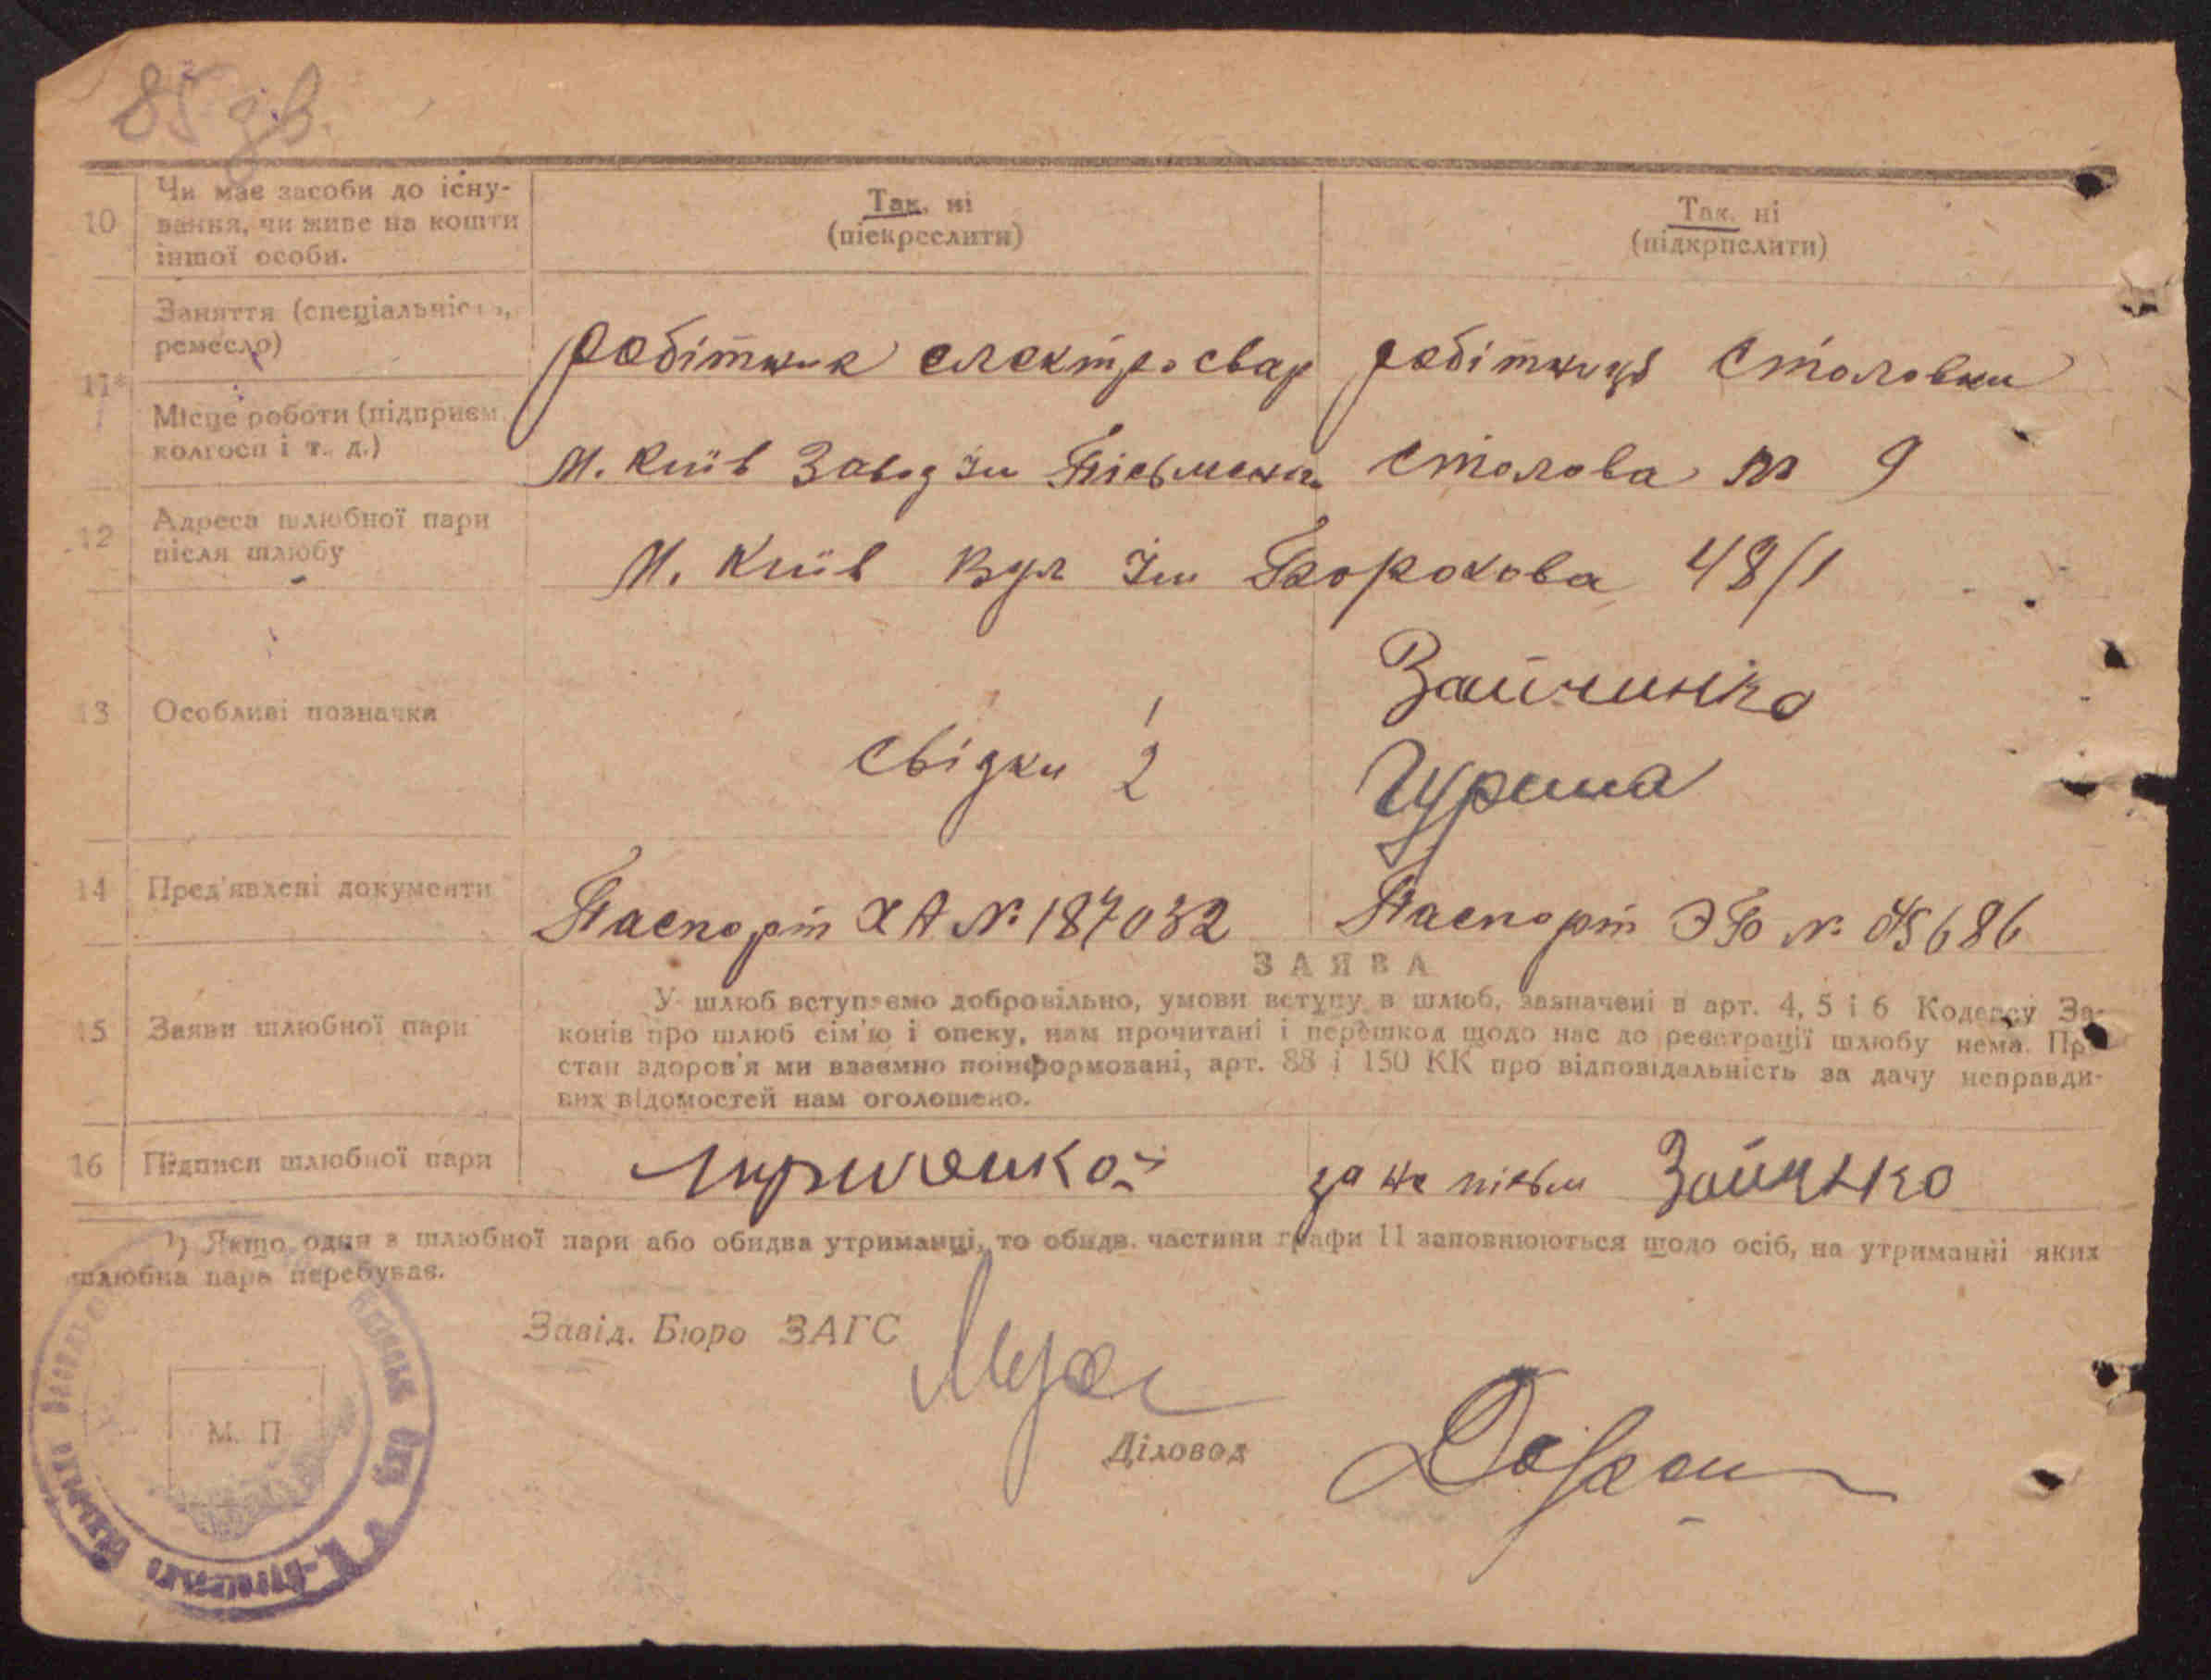 85 дв.
10 Чи має засоби до існу-
вання, чи живе на кошти
іншої особи.
Так, ні
(піекреслити)
Так, ні
(підкрпслити)
11* Заняття (спеціальність,
ремесло)
робітник електросвар
робітниця столовки
Місце роботи (підприєм
колгосп і т. д.)
м. Київ Завод Ім Письмена
столова № 9
12 Адреса шлюбної пари
після шлюбу
м. Київ вул Ім Борохова 48/1
13 Особливі позначки
свідки 1 Зайчинко
2 Гурина
14 Пред'явлені документи
Паспорт ХА № 187032
Паспорт ЭЮ №
ЗАЯВА
15 Заяви шлюбної пари
У шлюб вступаємо добровільно, умови вступу в шлюб, зазначені в арт. 4, 5 і 6 Кодексу За-
конів про шлюб сім'ю і опеку, нам прочитані і перешкод щодо нас до реєстрації шлюбу нема. Пр
стан здоров'я ми взаємно поінформовані, арт. 88 і 150 КК про відповідальність за дачу неправди-
вих відомостей нам оголошено.
16 Підписи шлюбної пари
за не письм Зайченко
¹) Якщо один з шлюбної пари або обидва утриманці, то обидв. частини графи 11 заповнюються щодо осіб, на утриманні яких
шлюбна пара перебуває.
Завід. Бюро ЗАГС
Діловод
М. П